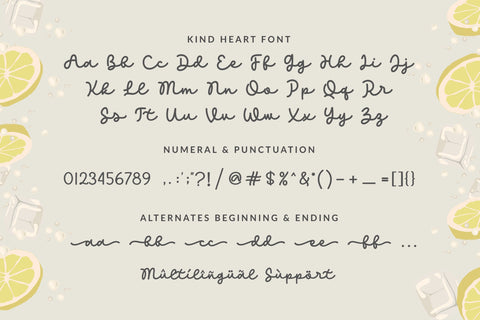 KIND HEART FONT
Aa Bb Cc Dd Ee Ff Gg Hh Ii Jj
Kk Ll Mm Nn Oo Pp Qq Rr
Ss Tt Uu Vv Ww Xx Yy Zz
NUMERAL & PUNCTUATION
0123456789 ,.:';"?!/@#$%^&*()-+_=[]{}
ALTERNATES BEGINNING & ENDING
aa bb cc dd ee ff ...
Múltilìñgüãl Sùppört